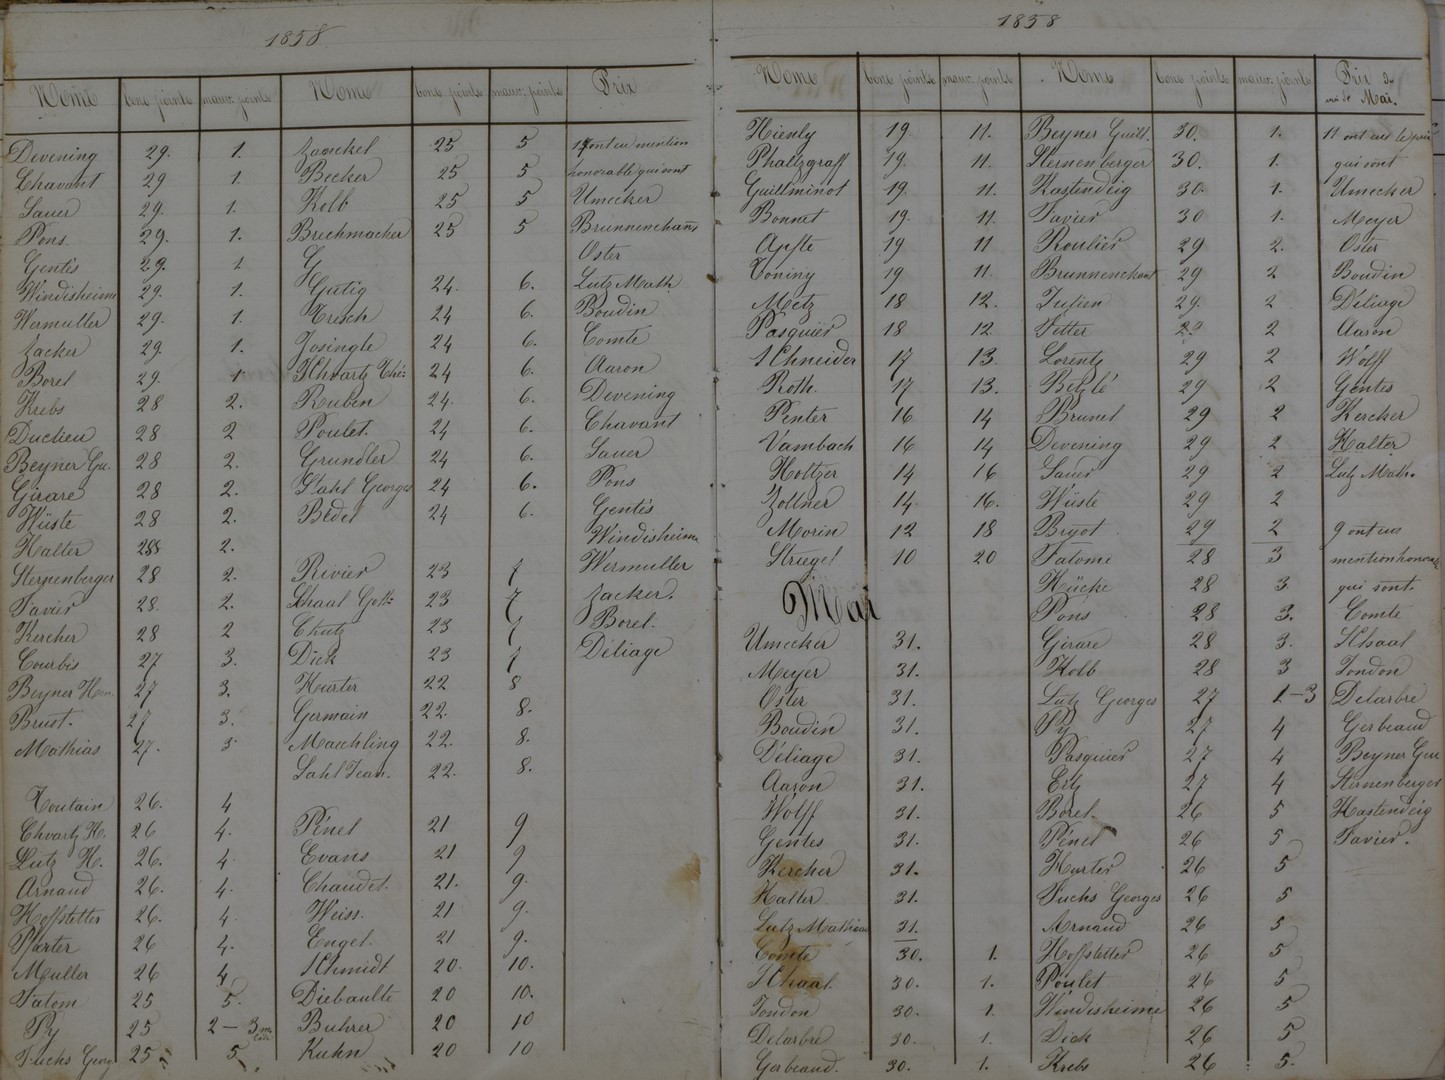 1858
Noms bons points mauv. points Noms bons points mauv. points Prix
Devening 29. 1.
Chavant 29 1.
Sauer 29. 1.
Pons 29. 1.
Gentès 29. 1
Windisheime 29. 1.
Wermuller 29. 1.
Zacker 29. 1.
Borel 29. 1.
Krebs 28 2.
Duclieu 28 2
Beyner Gu. 28 2.
Girare 28 2.
Wüste 28 2.
Halter 28 2.
Sternenberger 28 2.
Xavier 28. 2.
Kercher 28 2
Courbis 27 3.
Beyner Hen. 27 3.
Brust. 27 3.
Mathias 27. 3
Toutain 26. 4
Chvartz H. 26 4.
Lutz H. 26. 4.
Arnaud 26. 4.
Hoffstetter 26. 4.
Pfarter 26 4.
Muller 26 4
Salom 25 5.
Py 25 2 – 3 m.
Fuchs Georg 25 5
Zanckel 25 5
Becker 25 5
Kolb 25 5
Brechmacker 25 5
G
Gutig 24. 6.
Hresch 24 6.
Josingle 24 6.
Schvartz Thé. 24 6.
Reuben 24. 6.
Poulet. 24 6.
Grundler 24 6.
Stahl Georges 24 6.
Bedel 24 6.
Rivier 23 7
Schaal Gott. 23 7
Chutz 23 7
Dick 23 7
Hurter 22 8
Germain 22. 8.
Maechling 22. 8.
Stahl Jean. 22. 8.
Pénel 21 9
Evans 21 9
Chaudet. 21. 9.
Weiss. 21 9.
Engel. 21 9.
Schmidt 20. 10.
Diebaulte 20 10.
Buhrer 20 10
Kuhn 20 10
ont eu mention
honorable qui sont
Umecker
Brunnenchant
Oster
Lutz Math
Boudin
Comte
Aaron
Devening
Chavant
Sauer
Pons
Gentès
Windisheime
Wermuller
Zacker.
Borel.
Déliage
1858
Noms bons points mauv. points Noms bons points mauv. points Prix du
mois de Mai.
Hienly 19. 11.
Phaltzgraff 19. 11.
Guillminot 19. 11.
Bonnet 19. 11.
Apfte 19 11
Toniny 19. 11.
Metz 18 12.
Pasquier 18 12
Schneider 17 13.
Roth 17 13.
Penter 16 14
Vambach 16 14
Holtzer 14 16
Zollner 14. 16.
Morin 12 18
Kriegel 10 20
Mai
Umecker 31.
Meyer 31.
Oster 31.
Boudin 31.
Déliage 31.
Aaron 31.
Wolff 31.
Gentes 31.
Kercher 31.
Halter 31.
Lutz Mathias 31.
Comte 30. 1.
Schaal 30. 1.
Jondon 30. 1.
Delarbre 30. 1.
Gerbeaud. 30. 1.
Beyner Guill. 30. 1.
Sternenberger 30. 1.
Kastendeig 30. 1.
Xavier 30 1.
Roulier 29 2.
Brunnenchant 29 2
Julien 29. 2
Vetter 29 2
Lorentz 29 2
Belzlé 29 2
Brunel 29 2
Devening 29 2
Sauer 29 2
Wüste 29 2
Bryot 29 2
Salomé 28 3
Hücke 28 3
Pons 28 3.
Girare 28 3.
Kolb 28 3
Lutz Georges 27 1–3
Py 27 4
Pasquier 27 4
Ertz 27 4
Borel. 26 5
Pénel 26 5
Hurter 26 5
Fuchs Georges 26 5
Arnaud 26 5
Hoffstetter 26 5
Poulet 26 5
Windisheime 26 5
Dick 26 5
Krebs 26 5.
11 ont eu le prix
qui sont
Umecker
Meyer
Oster
Boudin
Déliage
Aaron
Wolff
Gentès
Kercher
Halter
Lutz Math.
9 ont eu
mention honora.
qui sont.
Comte
Schaal
Jondon
Delarbre
Gerbeaud
Beyner Guu
Sternenberger
Kastendeig
Xavier.